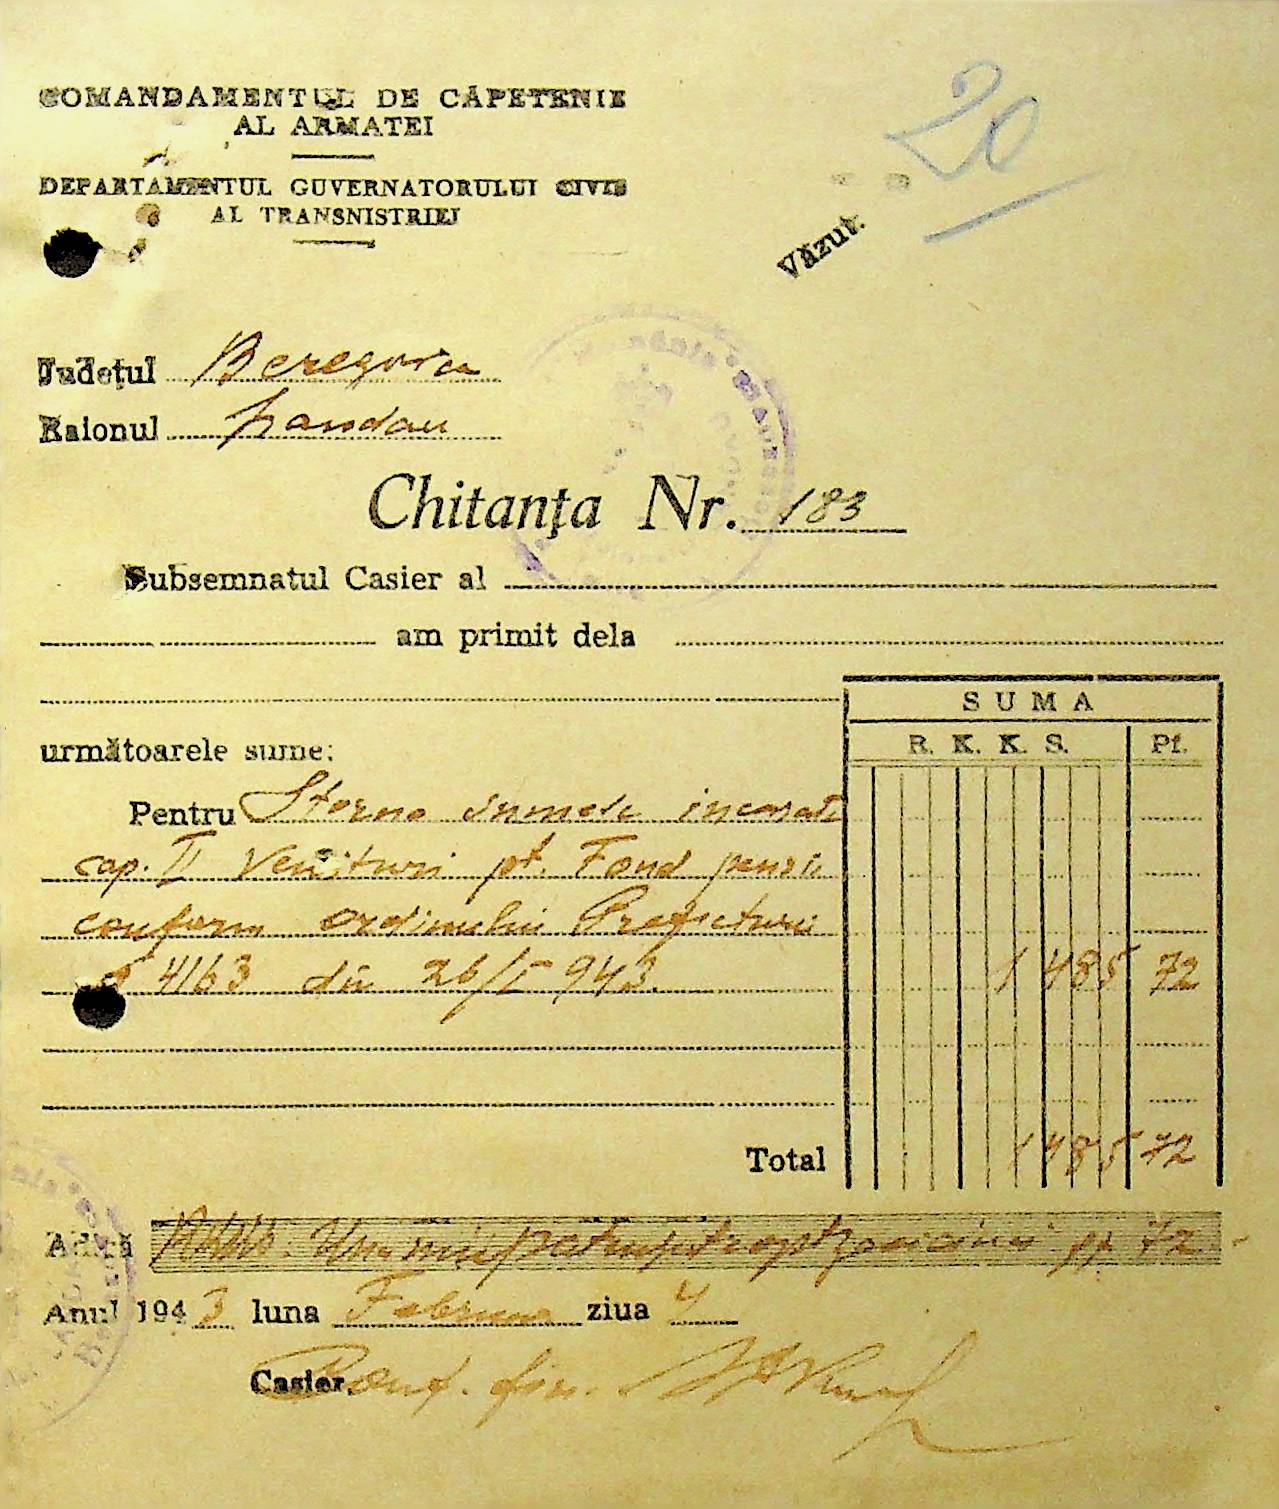 COMANDAMENTUL DE CĂPETENIE
AL ARMATEI
DEPARTAMENTUL GUVERNATORULUI CIVIL
AL TRANSNISTRIEI
20
Văzut.
Județul Beregovca
Raionul Landau
Chitanța Nr. 183
Subsemnatul Casier al
am primit dela
SUMA
următoarele sume:
R. K. K. S. Pf.
Pentru Storno sumele incasate
cap. II Venituri pt. Fond pensii
conform ordinului Prefecturii
4163 din 26/I 943. 1 485 72
Total 1 485 72
Adică Una mie patru sute optzecicinci pf. 72
Anul 1943 luna Februarie ziua 4
Casier, Conf. fin.